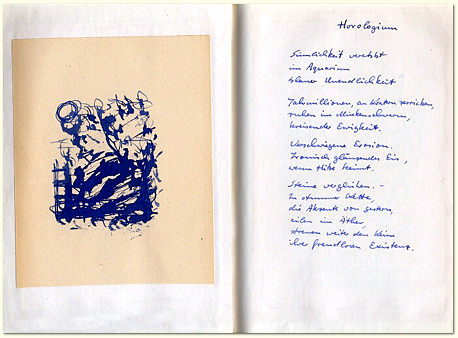 Horologium
Sinnlichkeit verätzt
im Aquarium
blauer Unendlichkeit
Jahrmillionen, an Küsten
ruhen im Mückenschwarm,
kreisender Ewigkeit.
Verschwiegene Erosion.
Ironisch glänzendes Eis,
wenn Hitze keimt.
Steine verglühen. –
In stummer Wette,
die Akzente von gestern,
eilen im Äther,
streuen weiter den Keim
ihrer freudlosen Existenz.